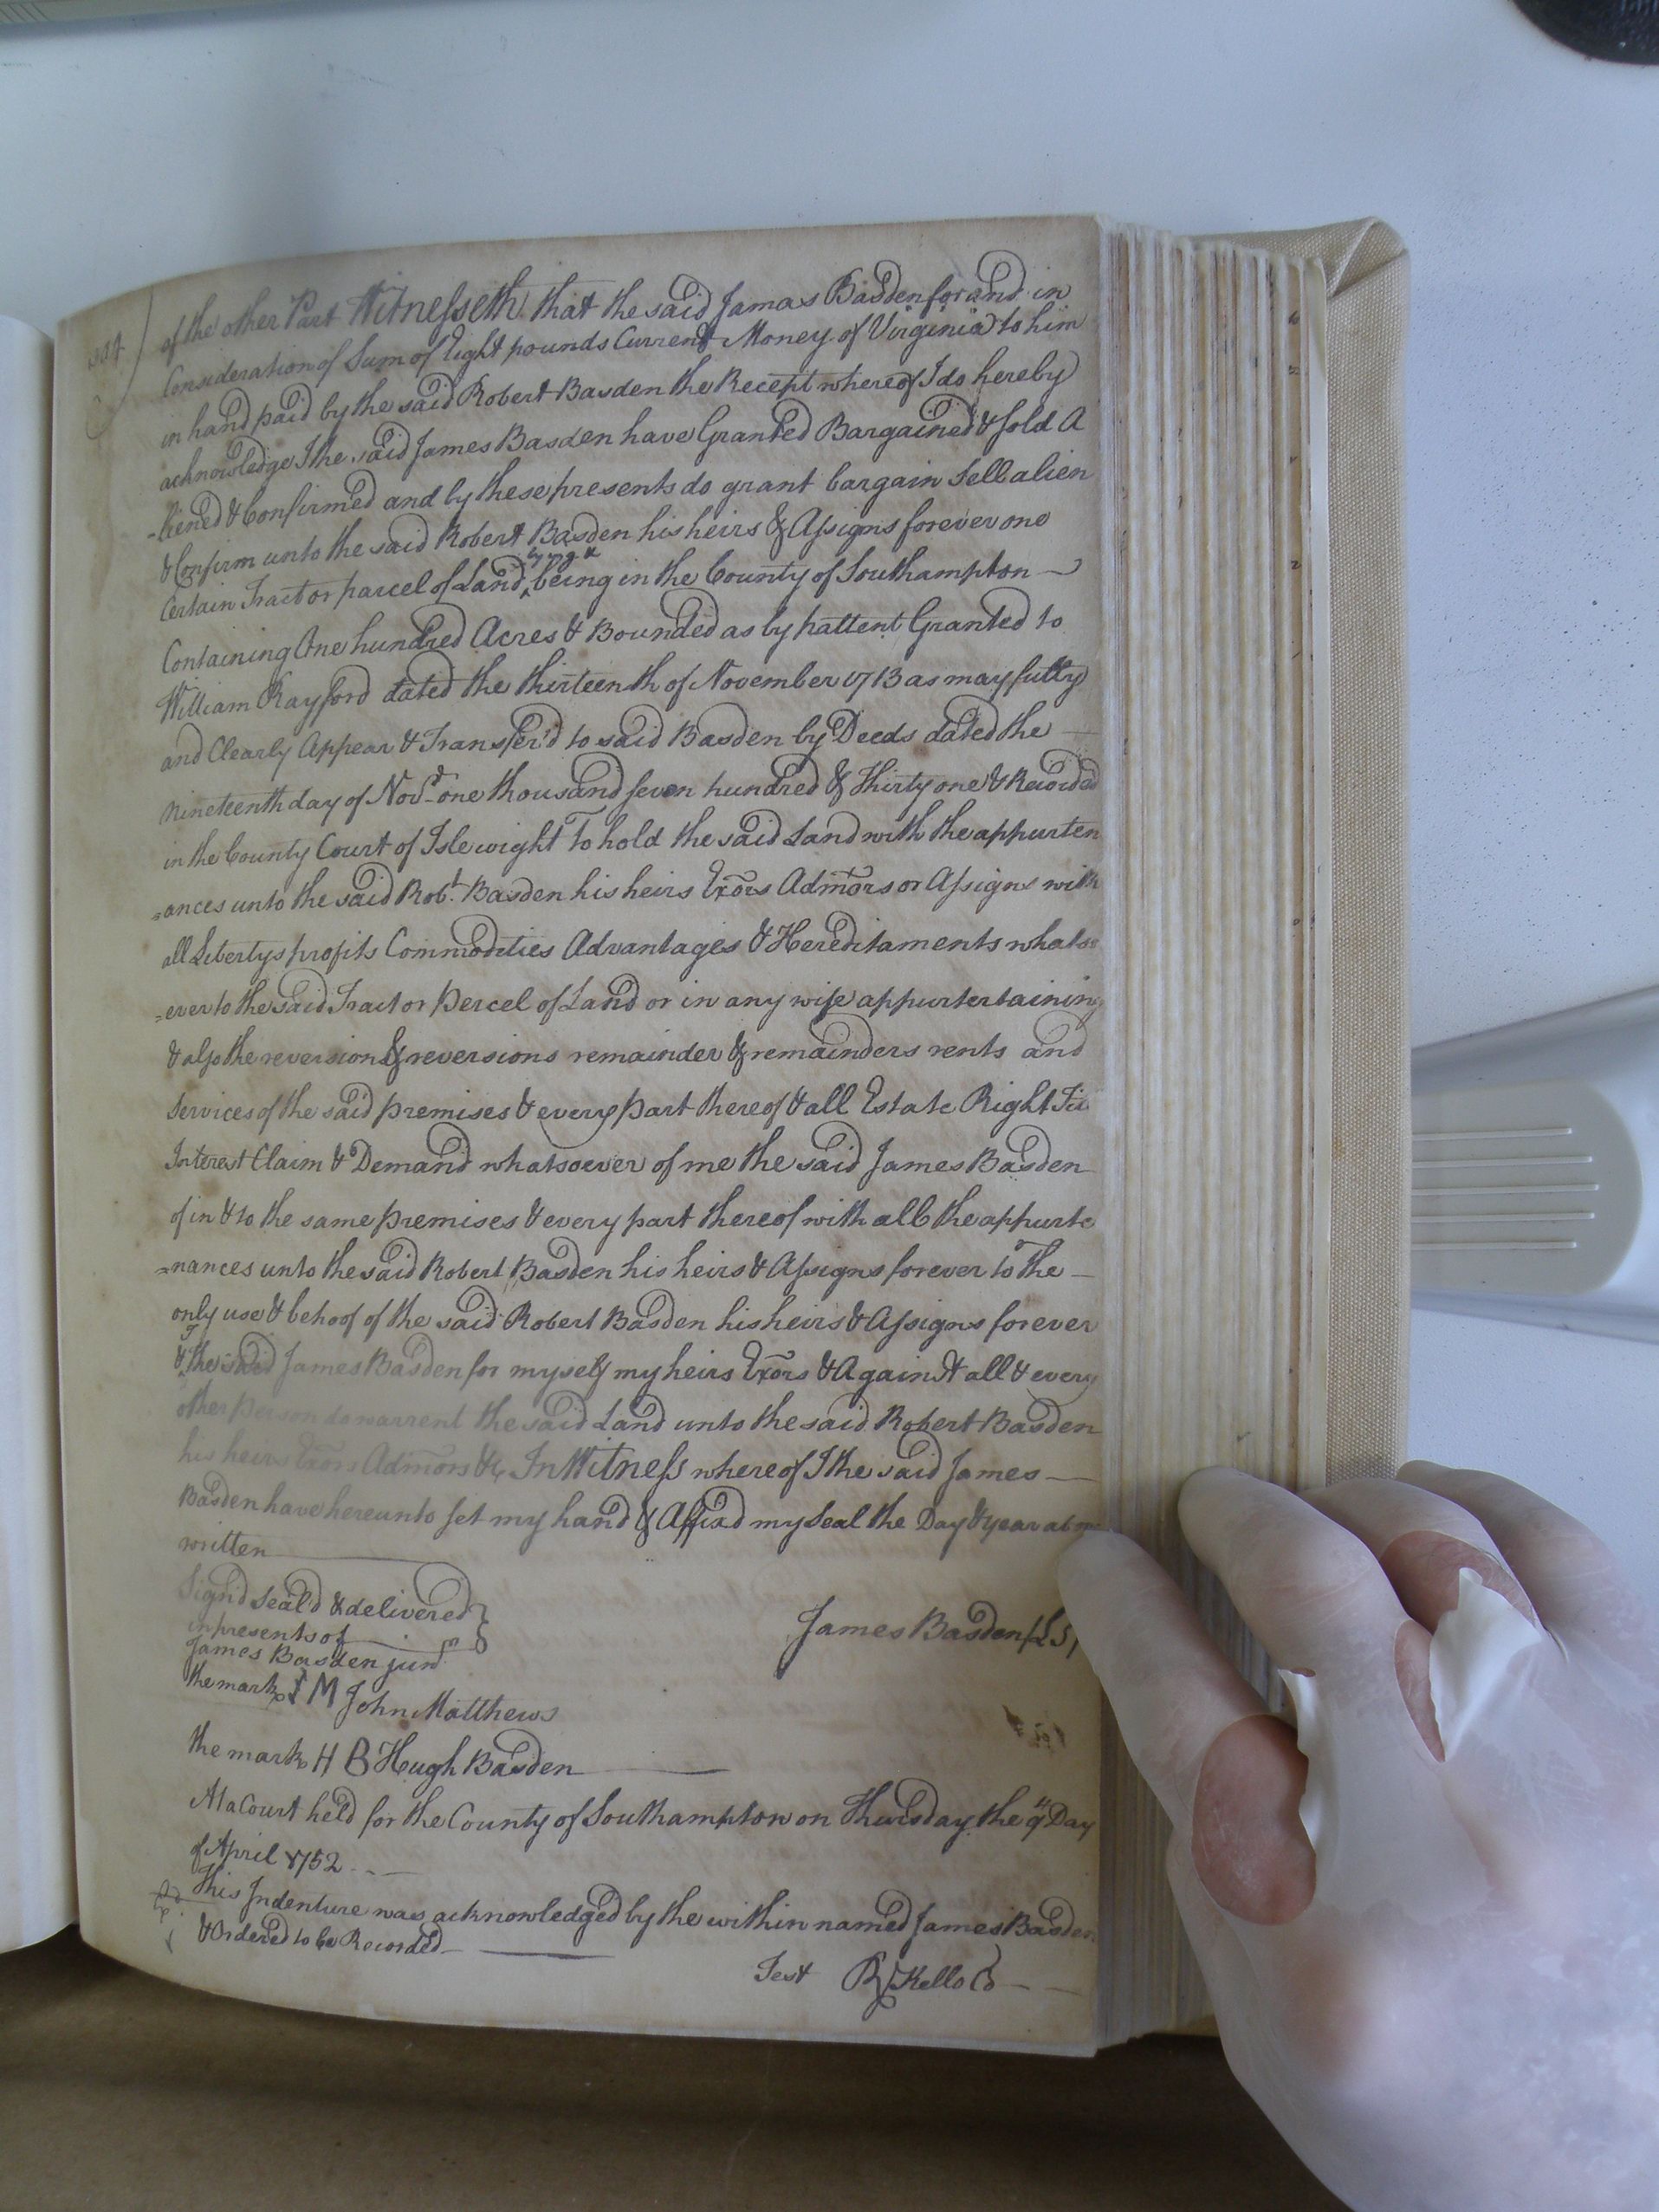 of the other Part Witnesseth that the said James Basden for and in
Consideration of Sum of Eight pounds Current Money of Virginia to him
in hand paid by the said Robert Basden the Recept whereof I do hereby
acknowledge I the said James Basden have Granted Bargained & sold A
-liened & Confirmed and by these presents do grant bargain Sell alien
& Confirm unto the said Robert Basden his heirs & Assigns forever one
Certain Tract or parcel of Land lying & being in the County of Southampton
Containing One hundred Acres & Bounded as by pattent Granted to
William Rayford dated the thirteenth of November 1713 as may fully
and Clearly Appear & Transfer'd to said Basden by Deeds dated the
nineteenth day of Novr one thousand seven hundred & Thirty one & Recorded
in the County Court of Isle wight To hold the said Land with the appurten
=ances unto the said Robt. Basden his heirs Exors Admors or Assigns with
all Libertys profits Commodities Advantages & Hereditaments whatso
=ever to the said Tract or Percel of Land or in any wise appurtertaining
& also the reversion & reversions remainder & remainders rents and
Services of the said premises & every part thereof & all Estate Right
Interest Claim & Demand whatsoever of me the said James Basden
of in & to the same premises & every part thereof with all the appurte
=nances unto the said Robert Basden his heirs & Assigns forever to The
only use & behoof of the said Robert Basden his heirs & Assigns forever
& I the said James Basden for myself my heirs Exors & Against all & every
other person do warrent the said Land unto the said Robert Basden
his heirs Exors Admors &c In Witness whereof I the said James
Basden have hereunto set my hand & Affixd my Seal the Day & year above
written
Signd Seal'd & delivered
in presents of
James Basden/LS/
James Basden junr
the mark I M John Matthews
the mark H B Hugh Basden
At a Court held for the County of Southampton on Thursday the 9th Day
of April 1752
This Indenture was acknowledged by the within named James Basden
& Ordered to be Recorded
Test R Kello